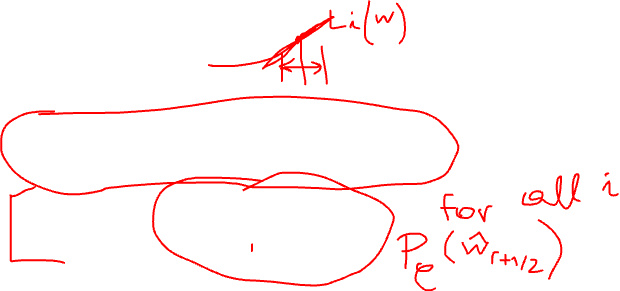 Li(w)
for all i
P_e(ŵ_{r+1/2})